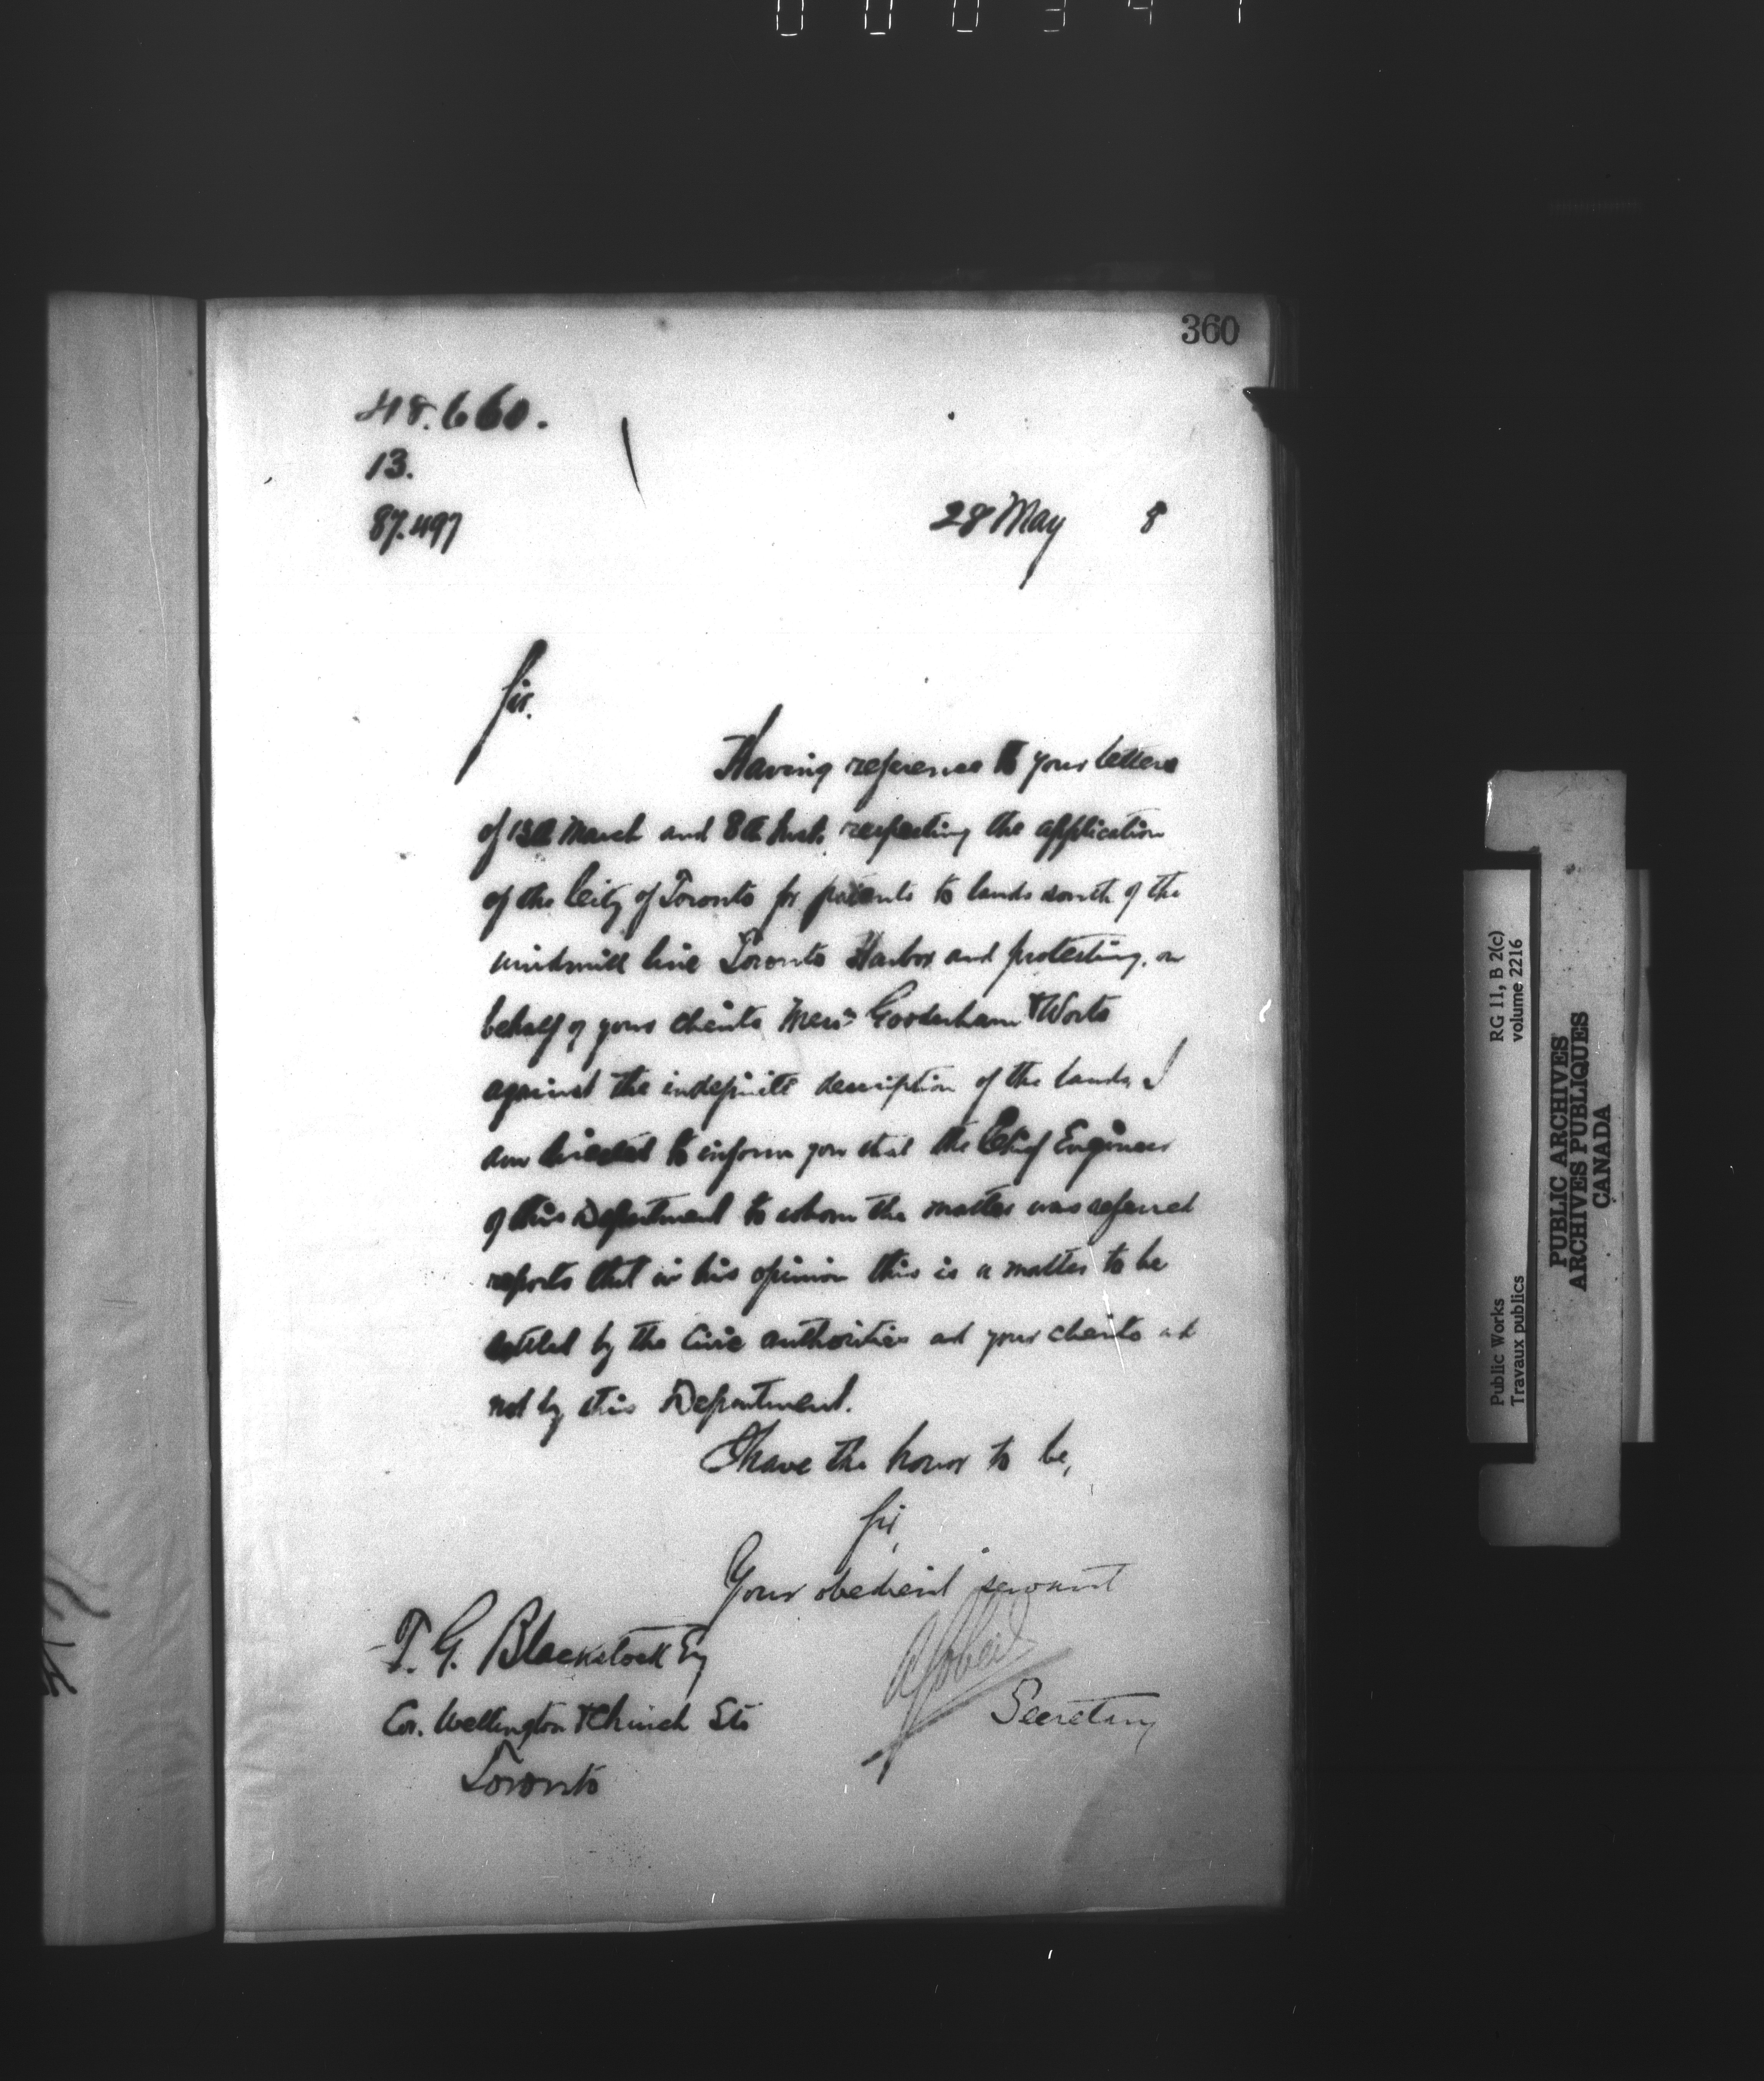 360
48.660.
13.
87.497
28 May 8
Sir.
Having reference to your letters
of 13th March and 8th Inst. respecting the application
of the City of Toronto for patents to lands south of the
windmill line Toronto Harbor and protesting, on
behalf of your clients, Messrs Gooderham & Worts
against the indefinite description of the lands, I
am directed to inform you that the Chief Engineer
of this Department to whom the matter was referred
reports that in his opinion this is a matter to be
settled by the Civic authorities and your clients and
not by this Department.
I have the honor to be,
Sir,
Your obedient servant
Secretary
T. G. Blackstock Esq
Cor. Wellington & Church Sts
Toronto
Public Works RG 11, B 2(c)
Travaux publics volume 2216
PUBLIC ARCHIVES
ARCHIVES PUBLIQUES
CANADA